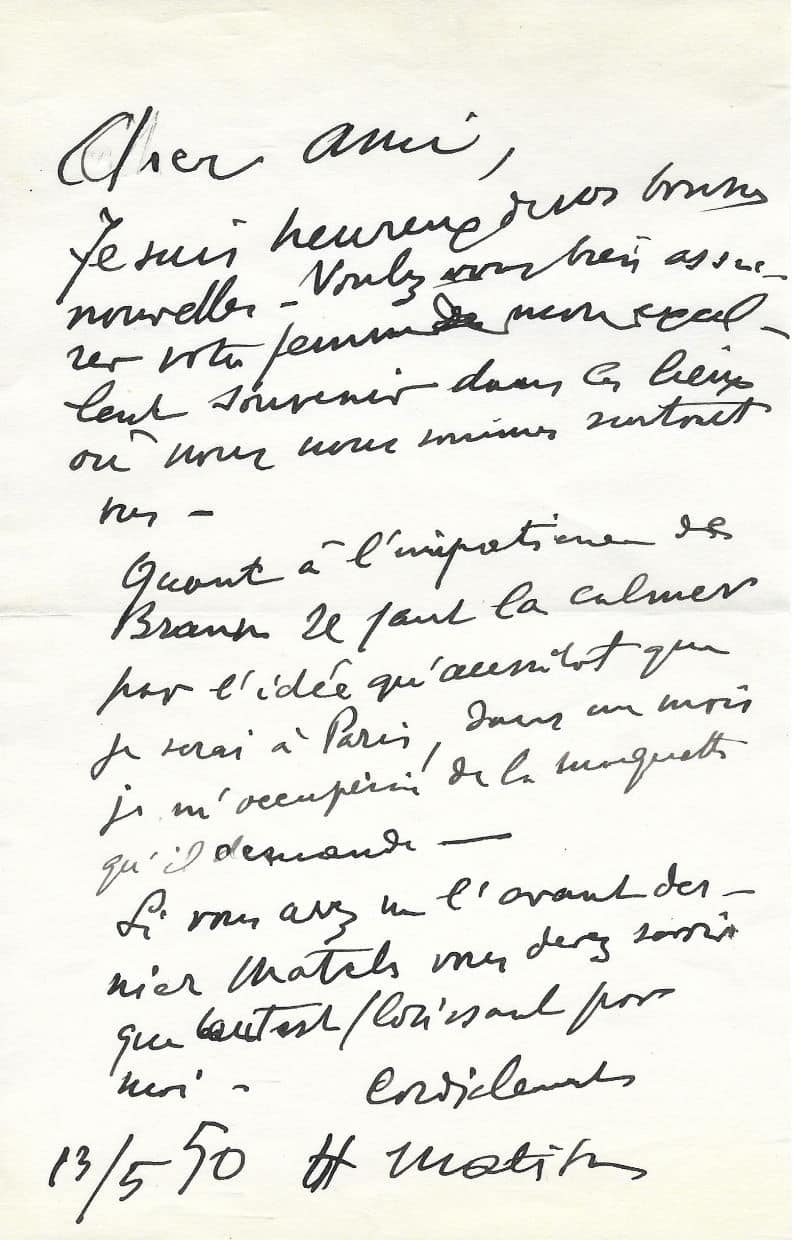 Cher ami,
Je suis heureux de vos bonnes
nouvelles - Voulez vous bien assu-
rer votre femme de mon excel-
lent souvenir dans les lieux
où nous nous sommes surtout
vus -
Quant à l'impatience de
Braun il faut la calmer
par l'idée qu'aussitôt que
je serai à Paris, dans un mois
je m'occuperai de la maquette
qu'il demande —
Si vous avez vu l'avant der-
nier Match vous devez savoir
que tout est florissant pour
moi - Cordialement
13/5 50 H Matisse